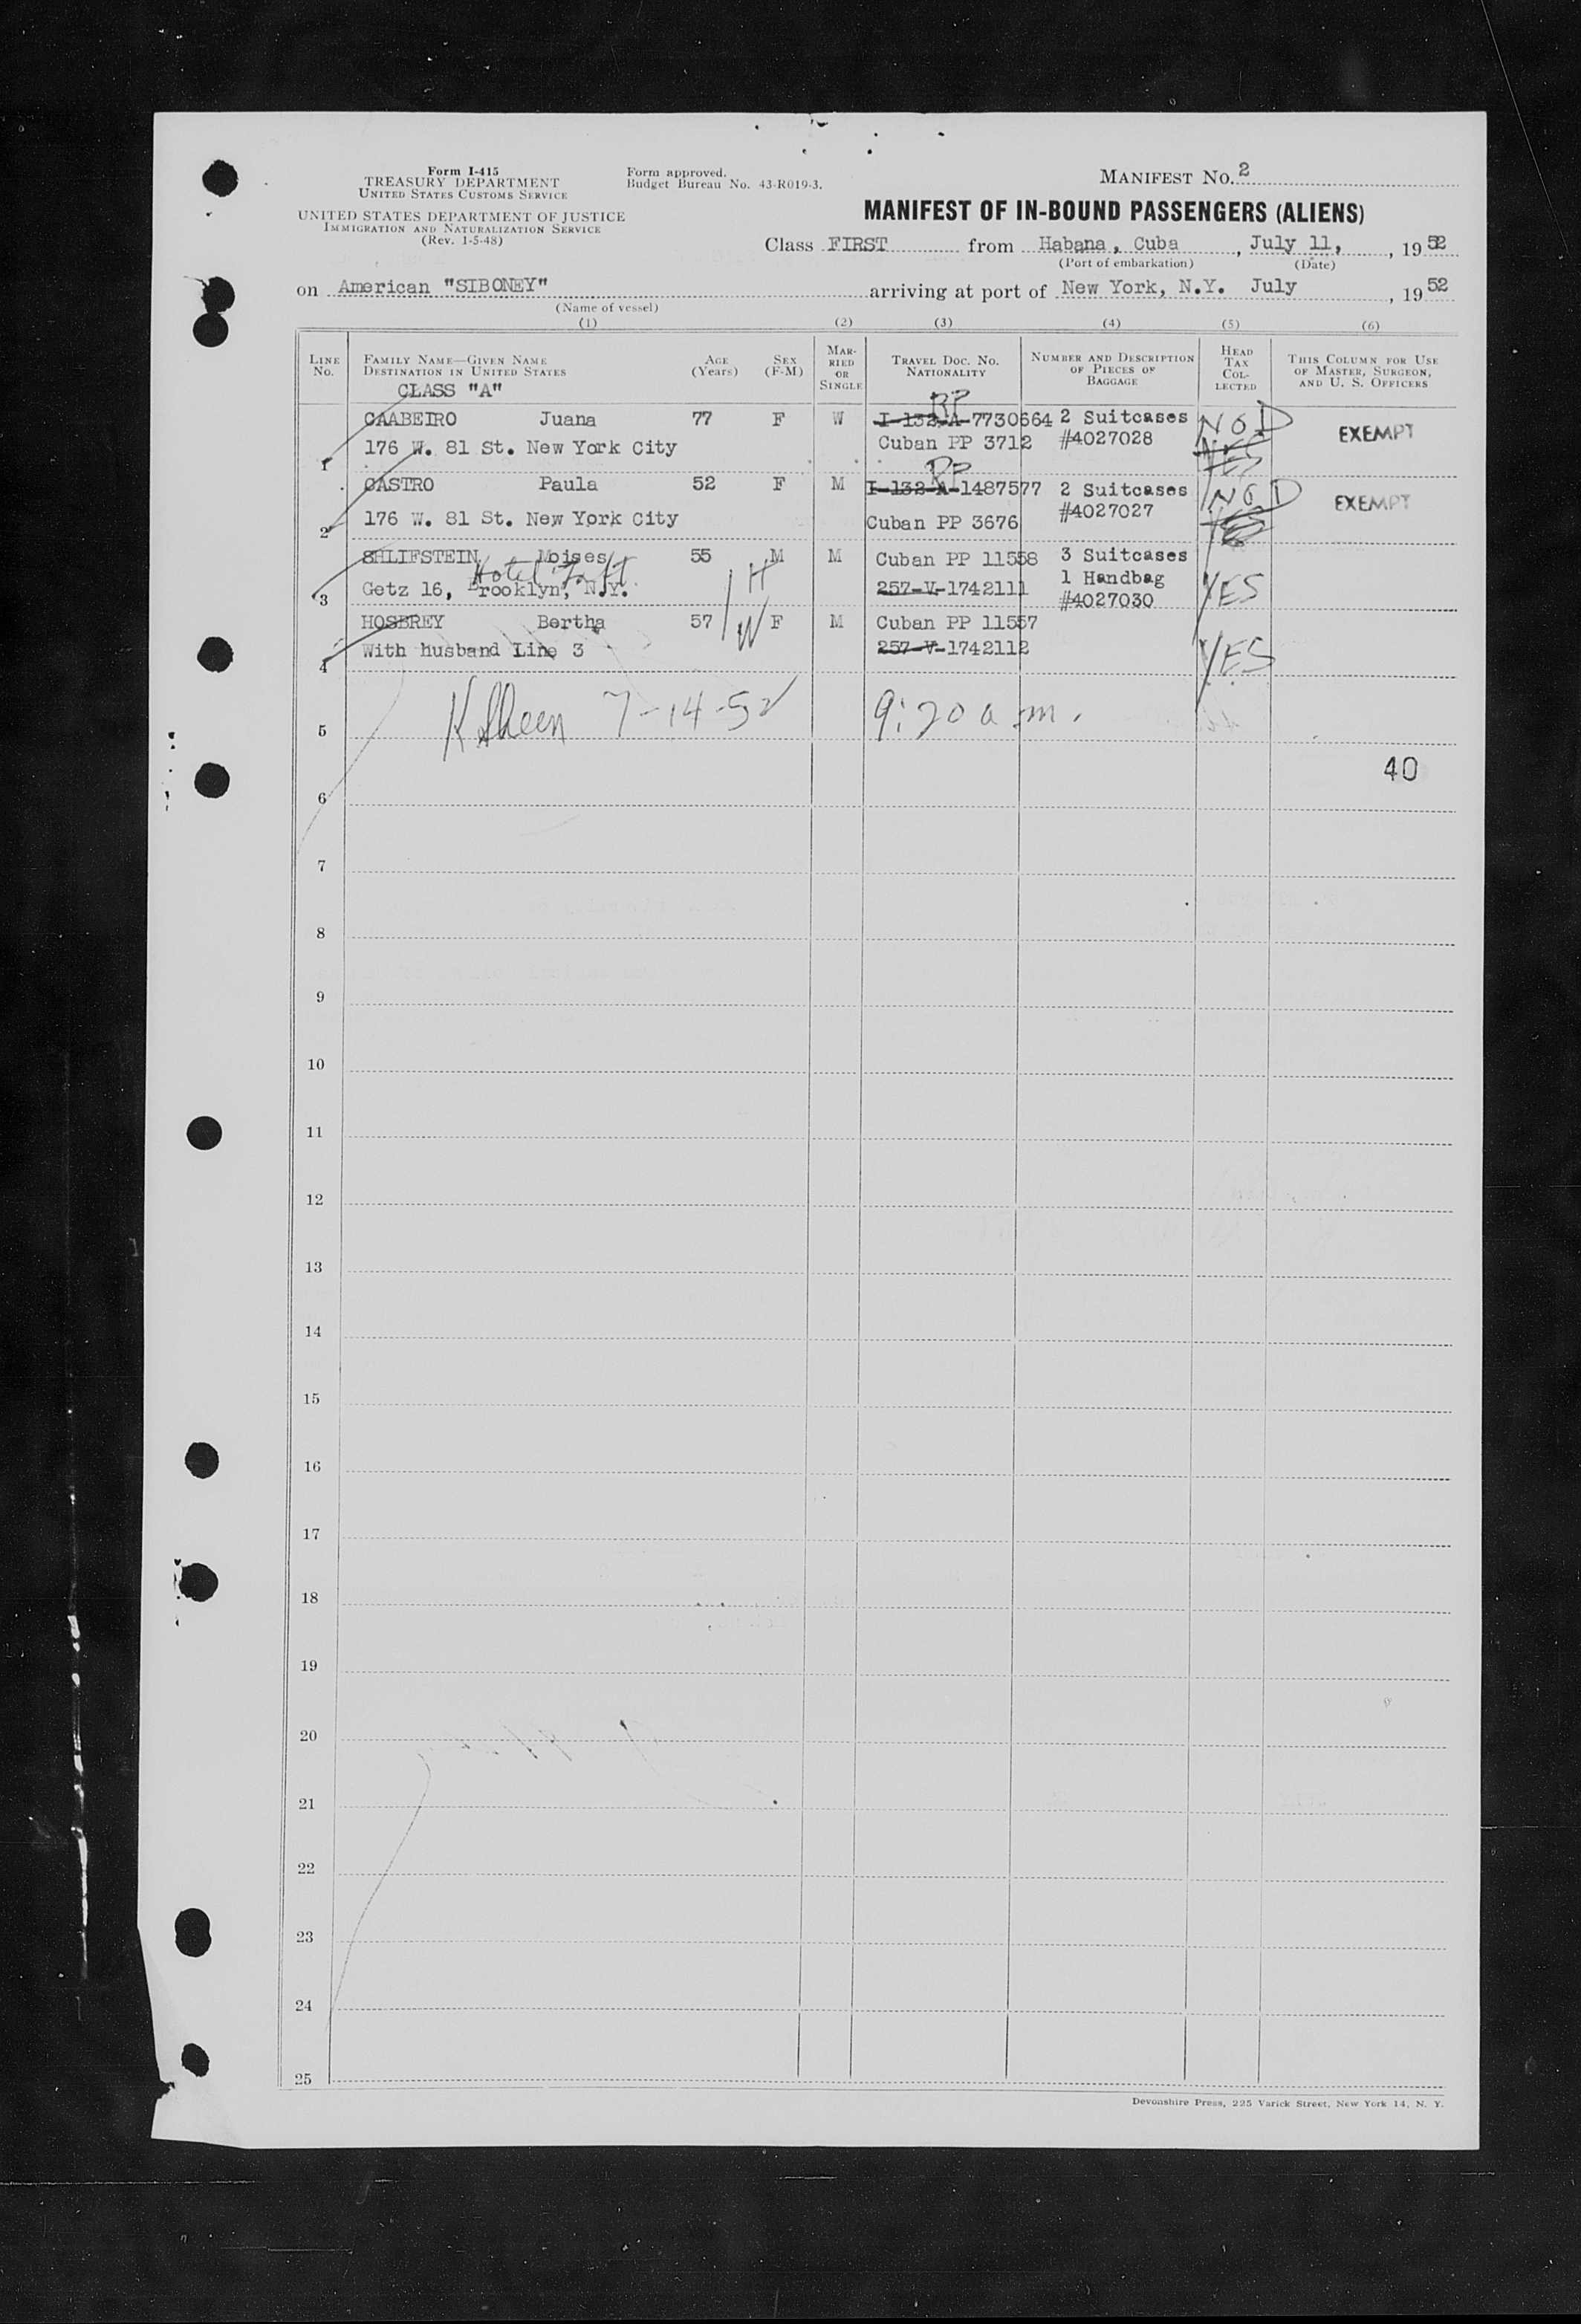 Form I-415
TREASURY DEPARTMENT
UNITED STATES CUSTOMS SERVICE
UNITED STATES DEPARTMENT OF JUSTICE
IMMIGRATION AND NATURALIZATION SERVICE
(Rev. 1-5-48)
Form approved.
Budget Bureau No. 43-R019-3.
MANIFEST NO. 2
MANIFEST OF IN-BOUND PASSENGERS (ALIENS)
Class FIRST from Habana, Cuba, July 11, 1952
(Port of embarkation) (Date)
on American "SIBONEY" arriving at port of New York, N.Y. July, 1952
(Name of vessel)
(1) (2) (3) (4) (5) (6)
LINE NO.
FAMILY NAME—GIVEN NAME
DESTINATION IN UNITED STATES
AGE (Years)
SEX (F-M)
MARRIED OR SINGLE
TRAVEL DOC. NO. NATIONALITY
NUMBER AND DESCRIPTION OF PIECES OF BAGGAGE
HEAD TAX COLLECTED
THIS COLUMN FOR USE OF MASTER, SURGEON, AND U. S. OFFICERS
CLASS "A"
RP
CAABEIRO Juana 77 F W I-132-A-7730664 2 Suitcases NOD EXEMPT
176 W. 81 St. New York City Cuban PP 3712 #4027028 YES
1
RP
CASTRO Paula 52 F M I-132-A-1487577 2 Suitcases NOD EXEMPT
176 W. 81 St. New York City Cuban PP 3676 #4027027 YES
2
SHLIFSTEIN Moises 55 M M Cuban PP 11558 3 Suitcases
Hotel Taft H 1 Handbag
Getz 16, Brooklyn, N.Y. 257-V-1742111 #4027030 YES
3
HOSBREY Bertha 57 W F M Cuban PP 11557
With husband Line 3 257-V-1742112 YES
4
K Sheen 7-14-52 9:20 a.m.
5
40
6
7
8
9
10
11
12
13
14
15
16
17
18
19
20
21
22
23
24
25
Devonshire Press, 225 Varick Street, New York 14, N. Y.